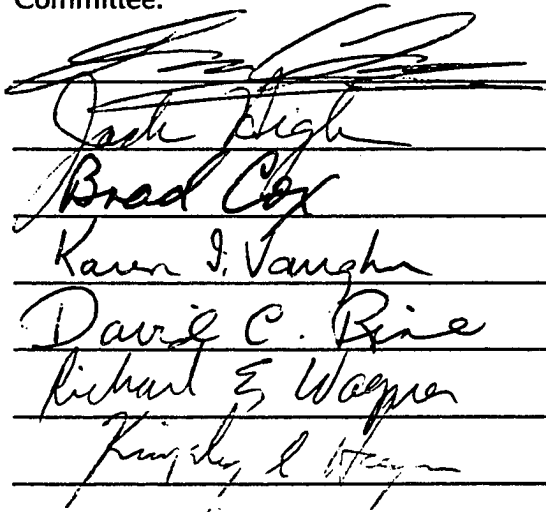 Committee:
Jack High
Brad Cox
Karen I. Vaughn
David C. Rine
Richard E. Wagner
Kingsley